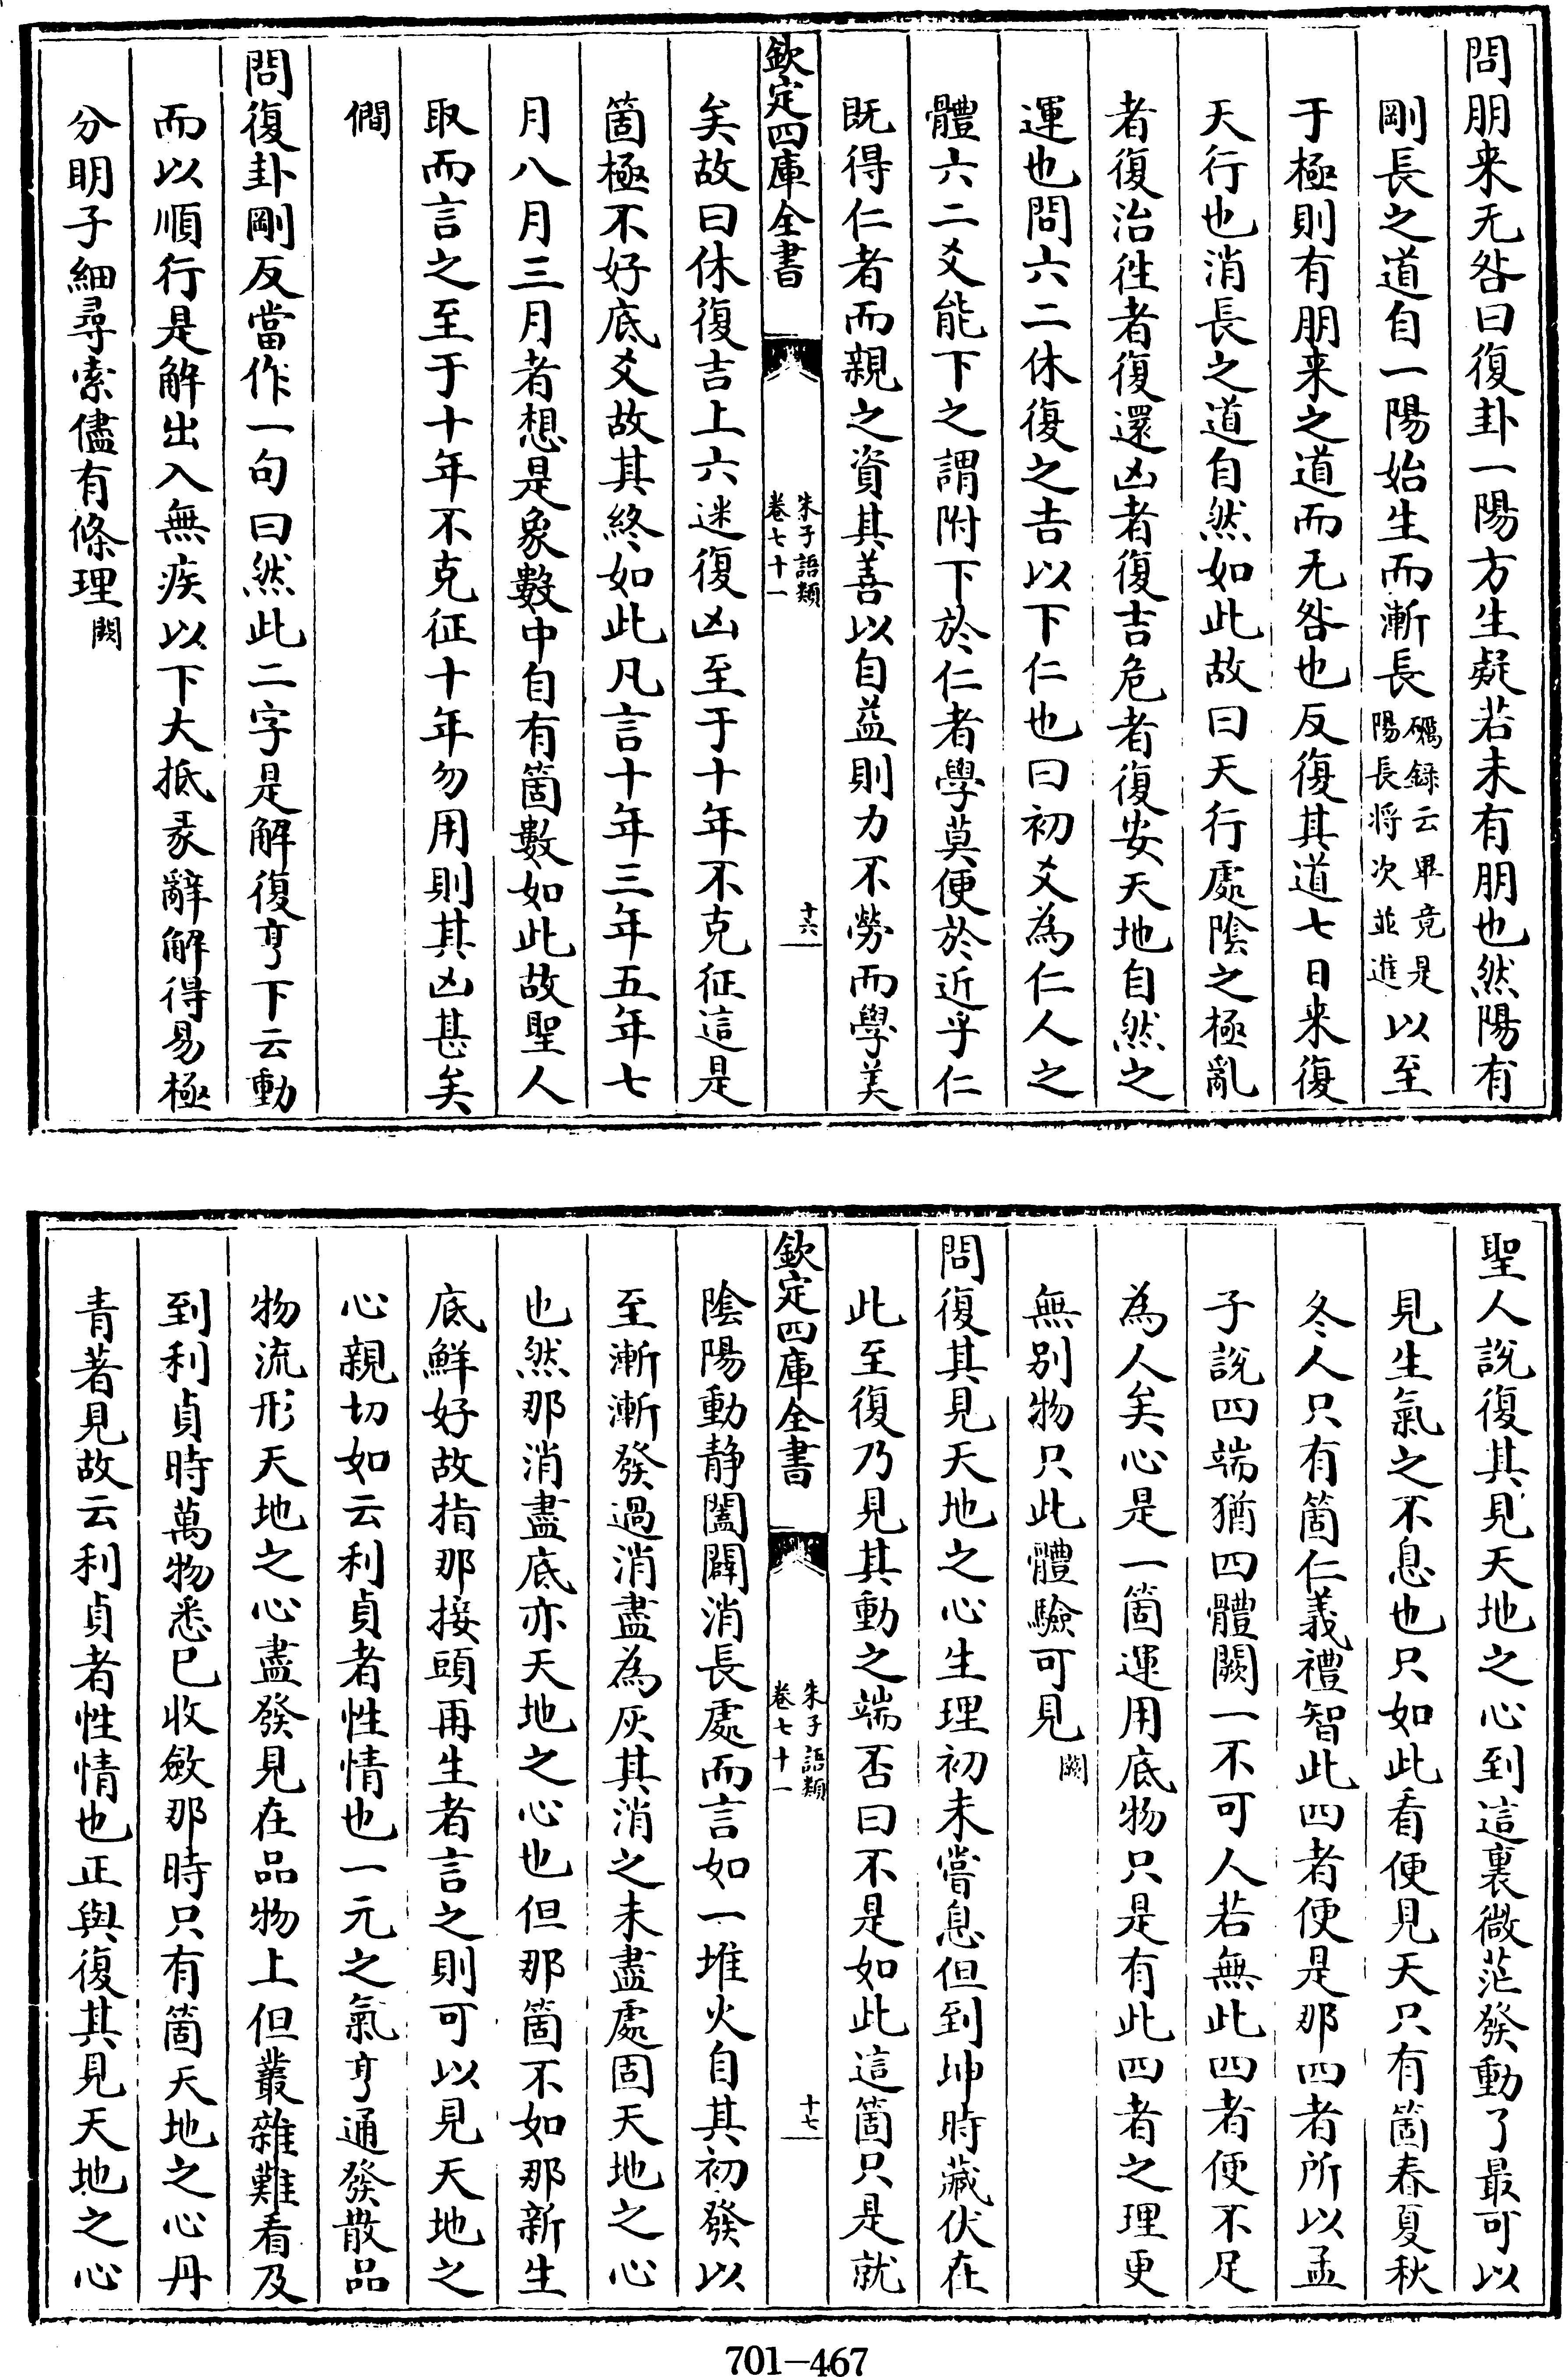 問朋来无咎曰復卦一陽方生疑若未有朋也然陽有
剛長之道自一陽始生而漸長礪録云畢竟是陽長将次並進以至
于極則有朋来之道而无咎也反復其道七日来復
天行也消長之道自然如此故曰天行處陰之極亂
者復治徃者復還凶者復吉危者復安天地自然之
運也問六二休復之吉以下仁也曰初爻為仁人之
體六二爻能下之謂附下於仁者學莫便於近乎仁
既得仁者而親之資其善以自益則力不勞而學美
欽定四庫全書
朱子語類
卷七十一
十六
矣故曰休復吉上六迷復凶至于十年不克征這是
箇極不好底爻故其終如此凡言十年三年五年七
月八月三月者想是象數中自有箇數如此故聖人
取而言之至于十年不克征十年勿用則其凶甚矣
僩
問復卦剛反當作一句曰然此二字是解復亨下云動
而以順行是解出入無疾以下大抵彖辭解得易極
分明子細尋索儘有條理闕
聖人說復其見天地之心到這裏微茫發動了最可以
見生氣之不息也只如此看便見天只有箇春夏秋
冬人只有箇仁義禮智此四者便是那四者所以孟
子說四端猶四體闕一不可人若無此四者便不足
為人矣心是一箇運用底物只是有此四者之理更
無別物只此體驗可見闕
問復其見天地之心生理初未嘗息但到坤時藏伏在
此至復乃見其動之端否曰不是如此這箇只是就
欽定四庫全書
朱子語類
卷七十一
十七
陰陽動静闔闢消長處而言如一堆火自其初發以
至漸漸發過消盡為灰其消之未盡處固天地之心
也然那消盡底亦天地之心也但那箇不如那新生
底鮮好故指那接頭再生者言之則可以見天地之
心親切如云利貞者性情也一元之氣亨通發散品
物流形天地之心盡發見在品物上但叢雜難看及
到利貞時萬物悉已收斂那時只有箇天地之心丹
青著見故云利貞者性情也正與復其見天地之心
701—467